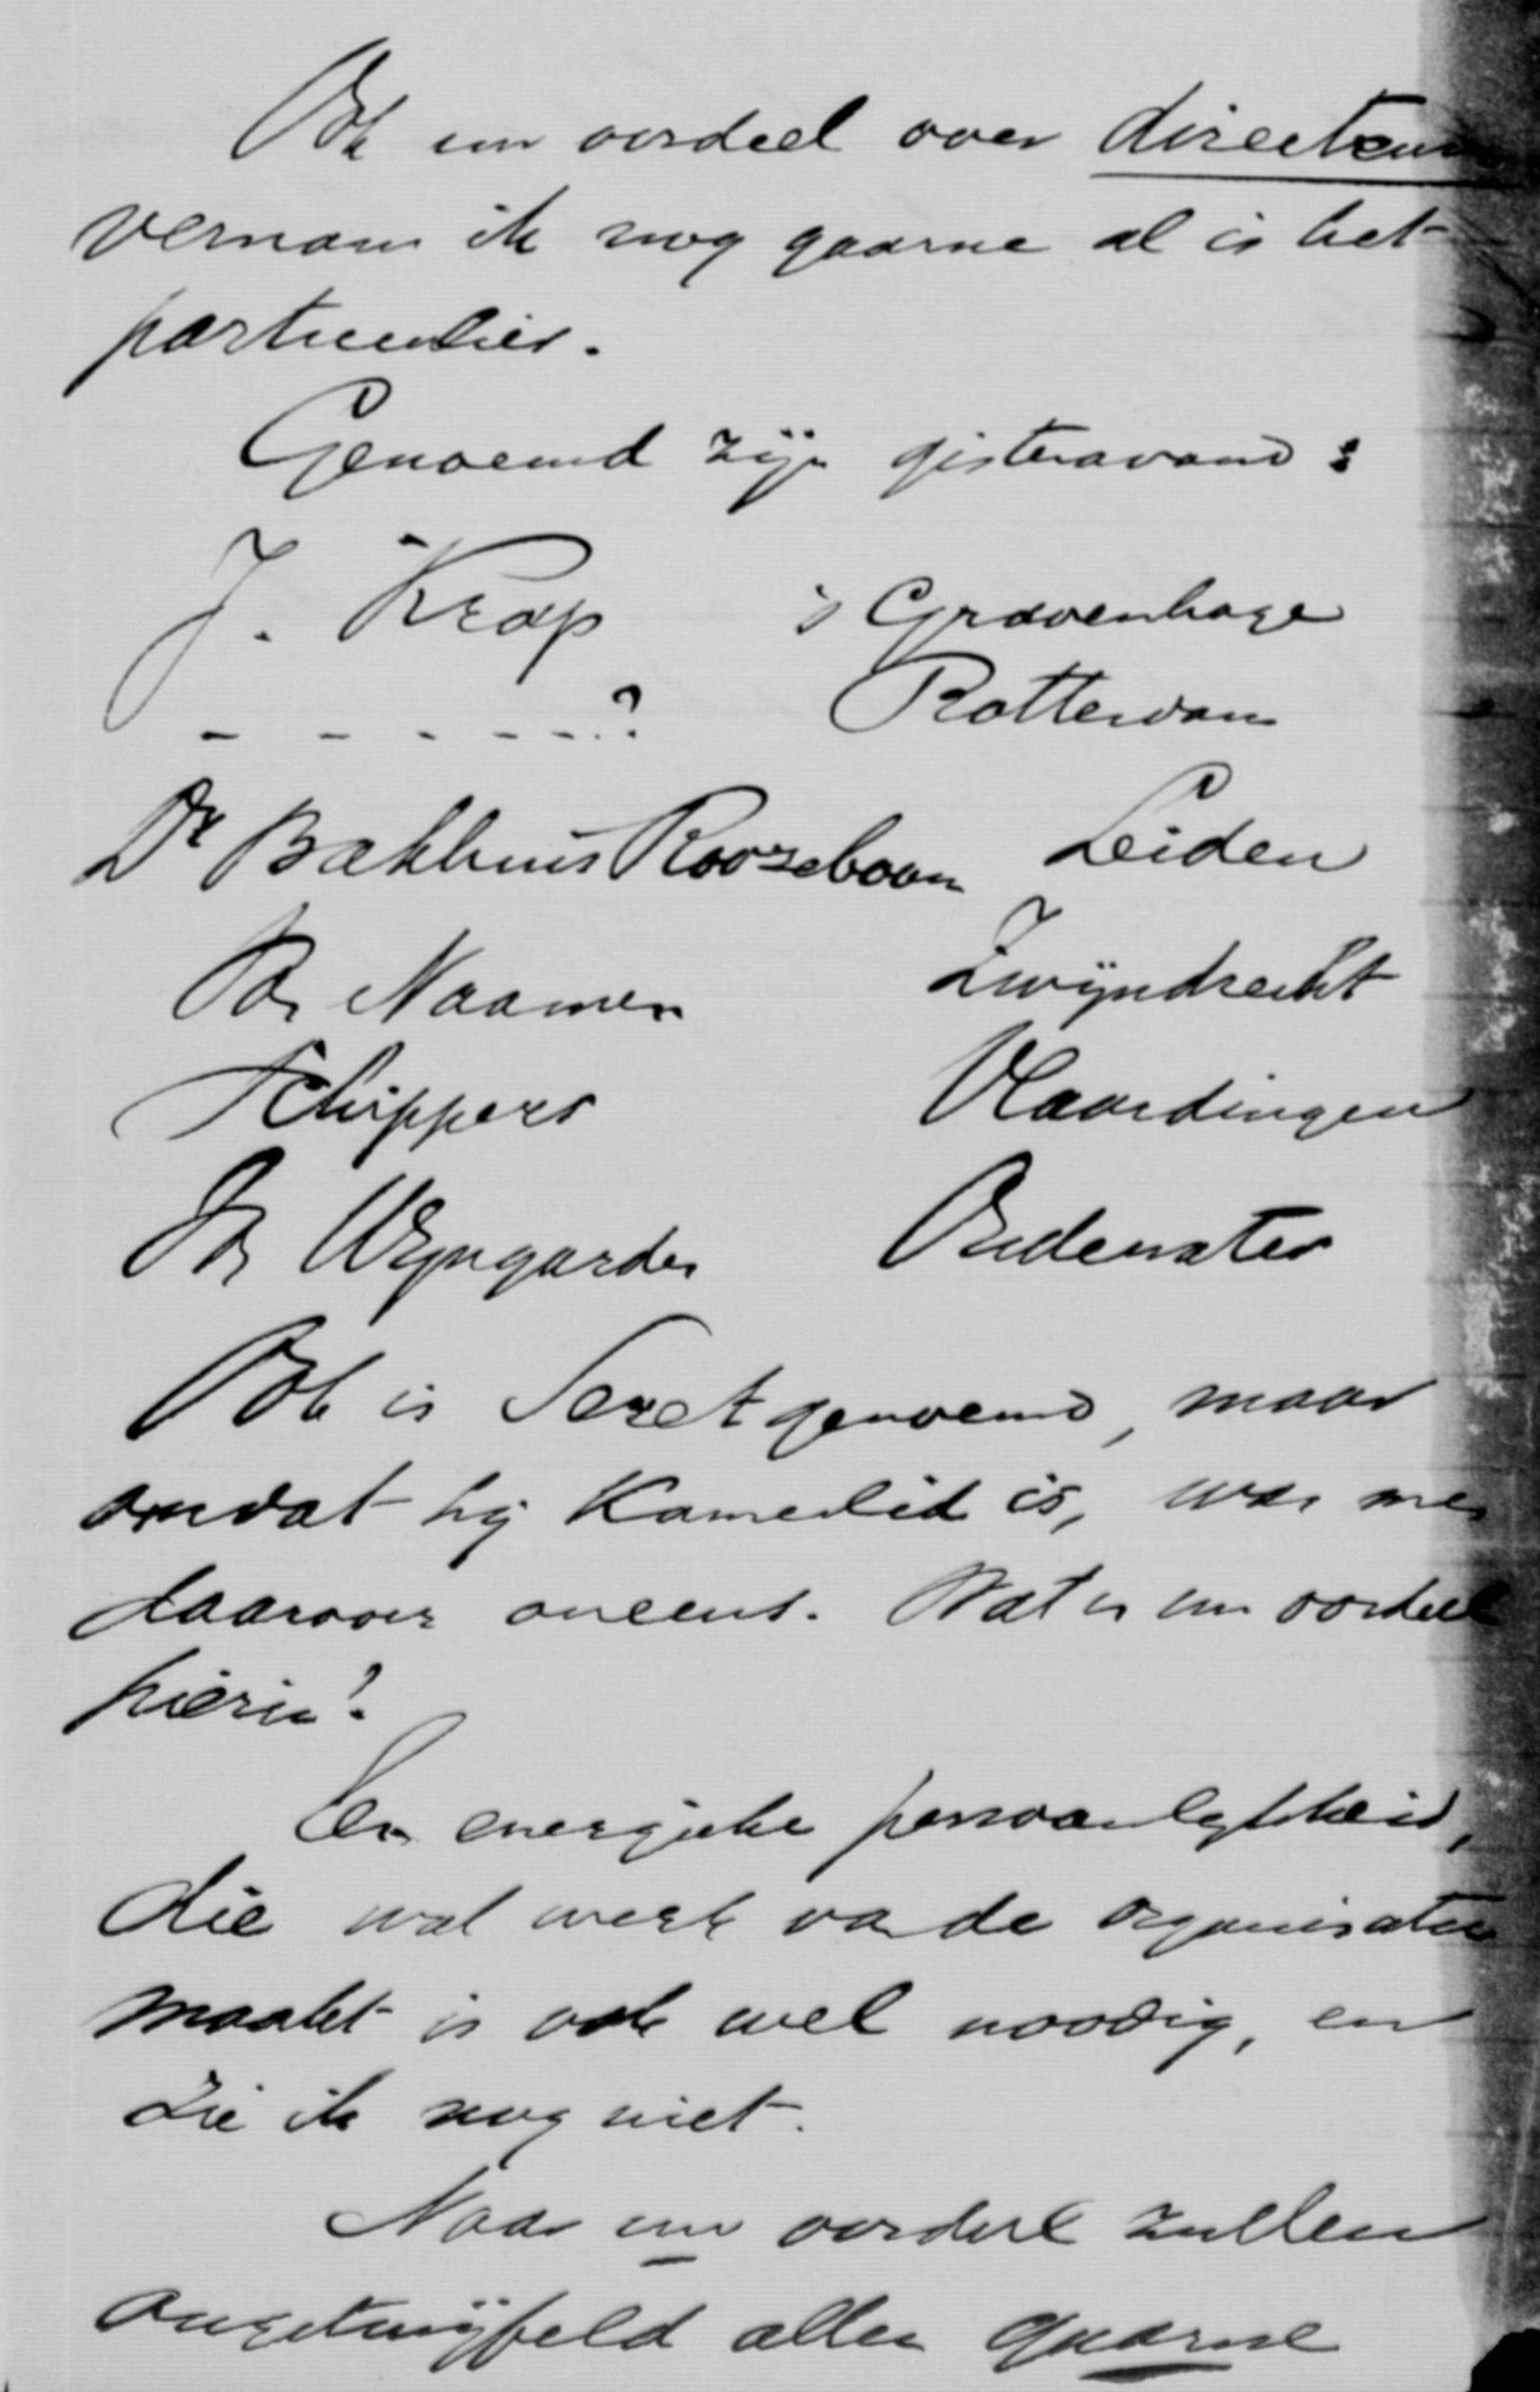 Ook uw oordeel over directeuren
vernam ik nog gaarne al is het
particulier.
Genoemd zijn gisteravond:
J. Krap 's Gravenhage
- - - - - -.? Rotterdam
Dr Bakhuis Roozeboom Leiden
Ds Naamen Zwijndrecht
Schippers Vlaardingen
Ds Wijngaarden Oudewater
Ook is Seret genoemd, maar
omdat hij Kamerlid is, was men
daarover oneens. Wat is uw oordeel
hierin?
Een energieke persoonlijkheid,
die wat werk van de organisatie
maakt is ook wel noodig, en
zie ik nog niet.
Naar uw oordeel zullen
ongetwijfeld allen gaarne